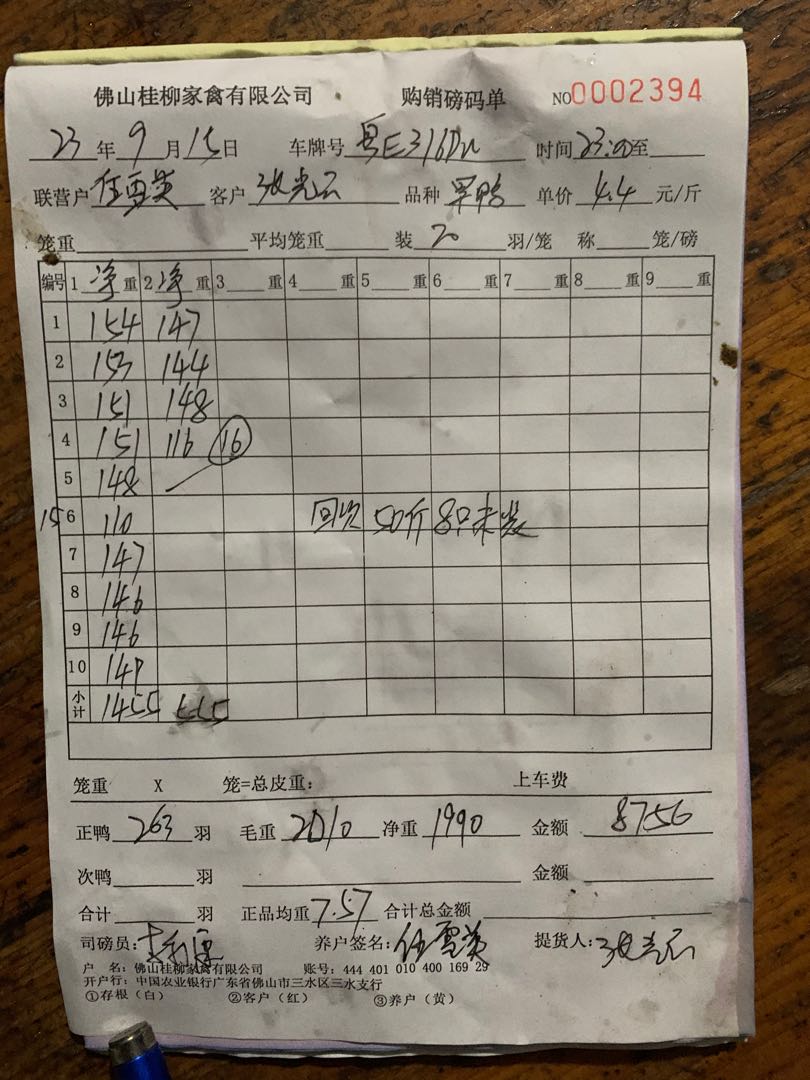 佛山桂柳家禽有限公司 购销磅码单 NO0002394
23年9月15日 车牌号 粤E316 时间23:00至
联营户 任雪英 客户 张光云 品种 鸭 单价 4.4 元/斤
笼重 平均笼重 装 20 羽/笼 称 笼/磅
编号 1净重 2净重 3重 4重 5重 6重 7重 8重 9重
1 154 147
2 153 144
3 151 148
4 151 116 16
5 148
15 6 110 回収 50斤 8只未装
7 147
8 146
9 146
10 149
小计 1455 555
笼重 X 笼=总皮重: 上车费
正鸭 263 羽 毛重 2010 净重 1990 金额 8756
次鸭 羽 金额
合计 羽 正品均重 7.57 合计总金额
司磅员: 养户签名: 任雪英 提货人: 张光云
户 名: 佛山桂柳家禽有限公司 账号: 444 401 010 400 169 29
开户行: 中国农业银行广东省佛山市三水区三水支行
①存根(白) ②客户(红) ③养户(黄)